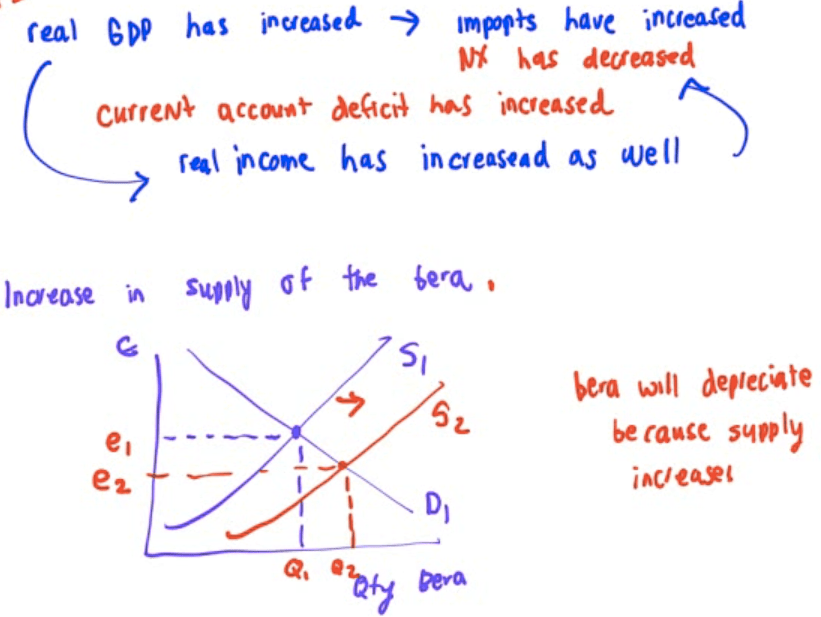 real GDP has increased → imports have increased
NX has decreased
current account deficit has increased
real income has increasead as well
Increase in supply of the bera.
€
S1
S2
e1
e2
D1
Q1 Q2
Qty Bera
bera will depreciate
because supply
increases